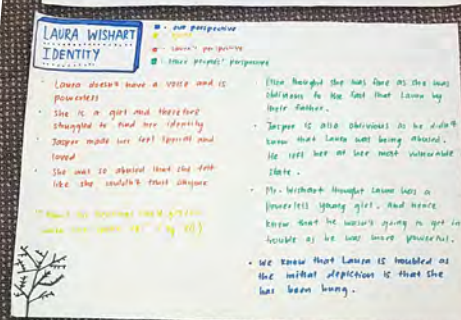 LAURA WISHART
IDENTITY
- our perspective
- Laura's perspective
- other peoples' perspectives
- Laura doesn't have a voice and is
powerless
- She is a girl and therefore
struggled to find her identity
- Jasper made her feel special and
loved
- She was so abused that she felt
like she couldn't trust anyone
- Eliza thought she was fine as she was
oblivious to the fact that Laura
their father.
- Jasper is also oblivious as he didn't
know that Laura was being abused.
He left her at her most vulnerable
state.
- Mr. Wishart thought Laura was a
powerless young girl, and hence
knew that he wasn't going to get in
trouble as he was more powerful.
- We know that Laura is troubled as
the initial depiction is that she
has been hung.